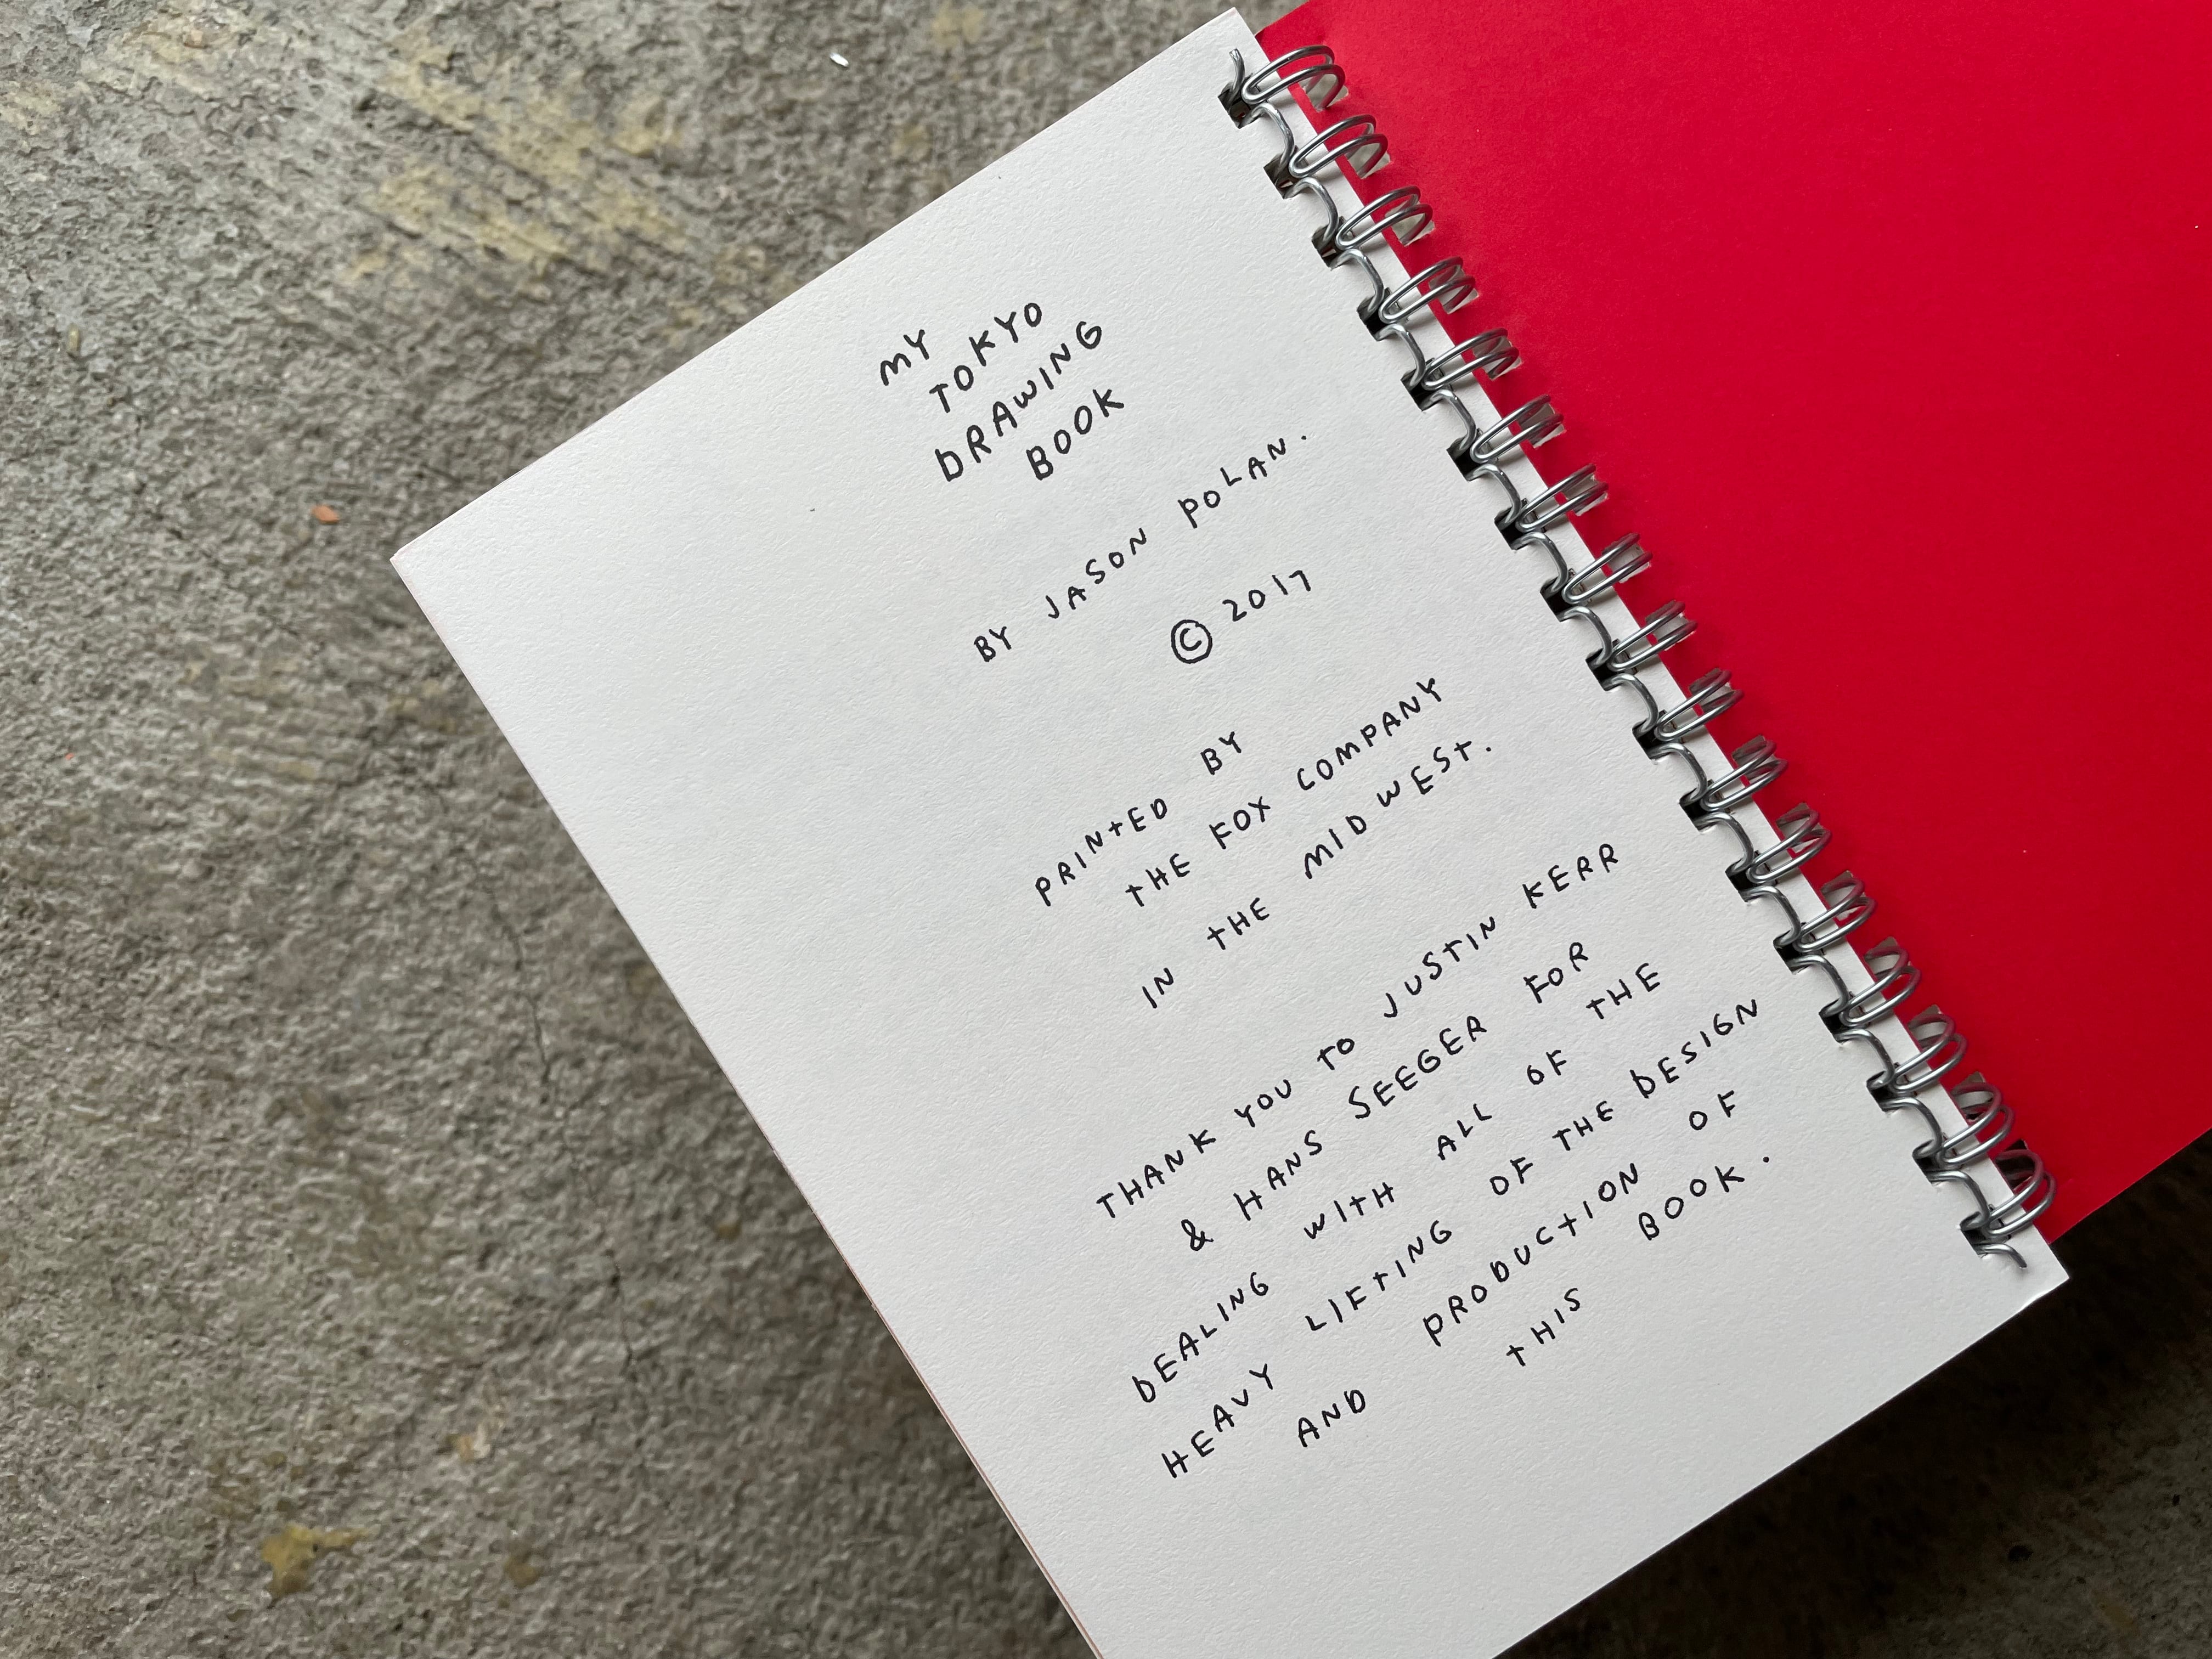 MY
TOKYO
DRAWING
BOOK
BY JASON POLAN.
© 2017
PRINTED BY
THE FOX COMPANY
IN THE MIDWEST.
THANK YOU TO JUSTIN KERR
& HANS SEEGER FOR
DEALING WITH ALL OF THE
HEAVY LIFTING OF THE DESIGN
AND PRODUCTION OF
THIS BOOK.